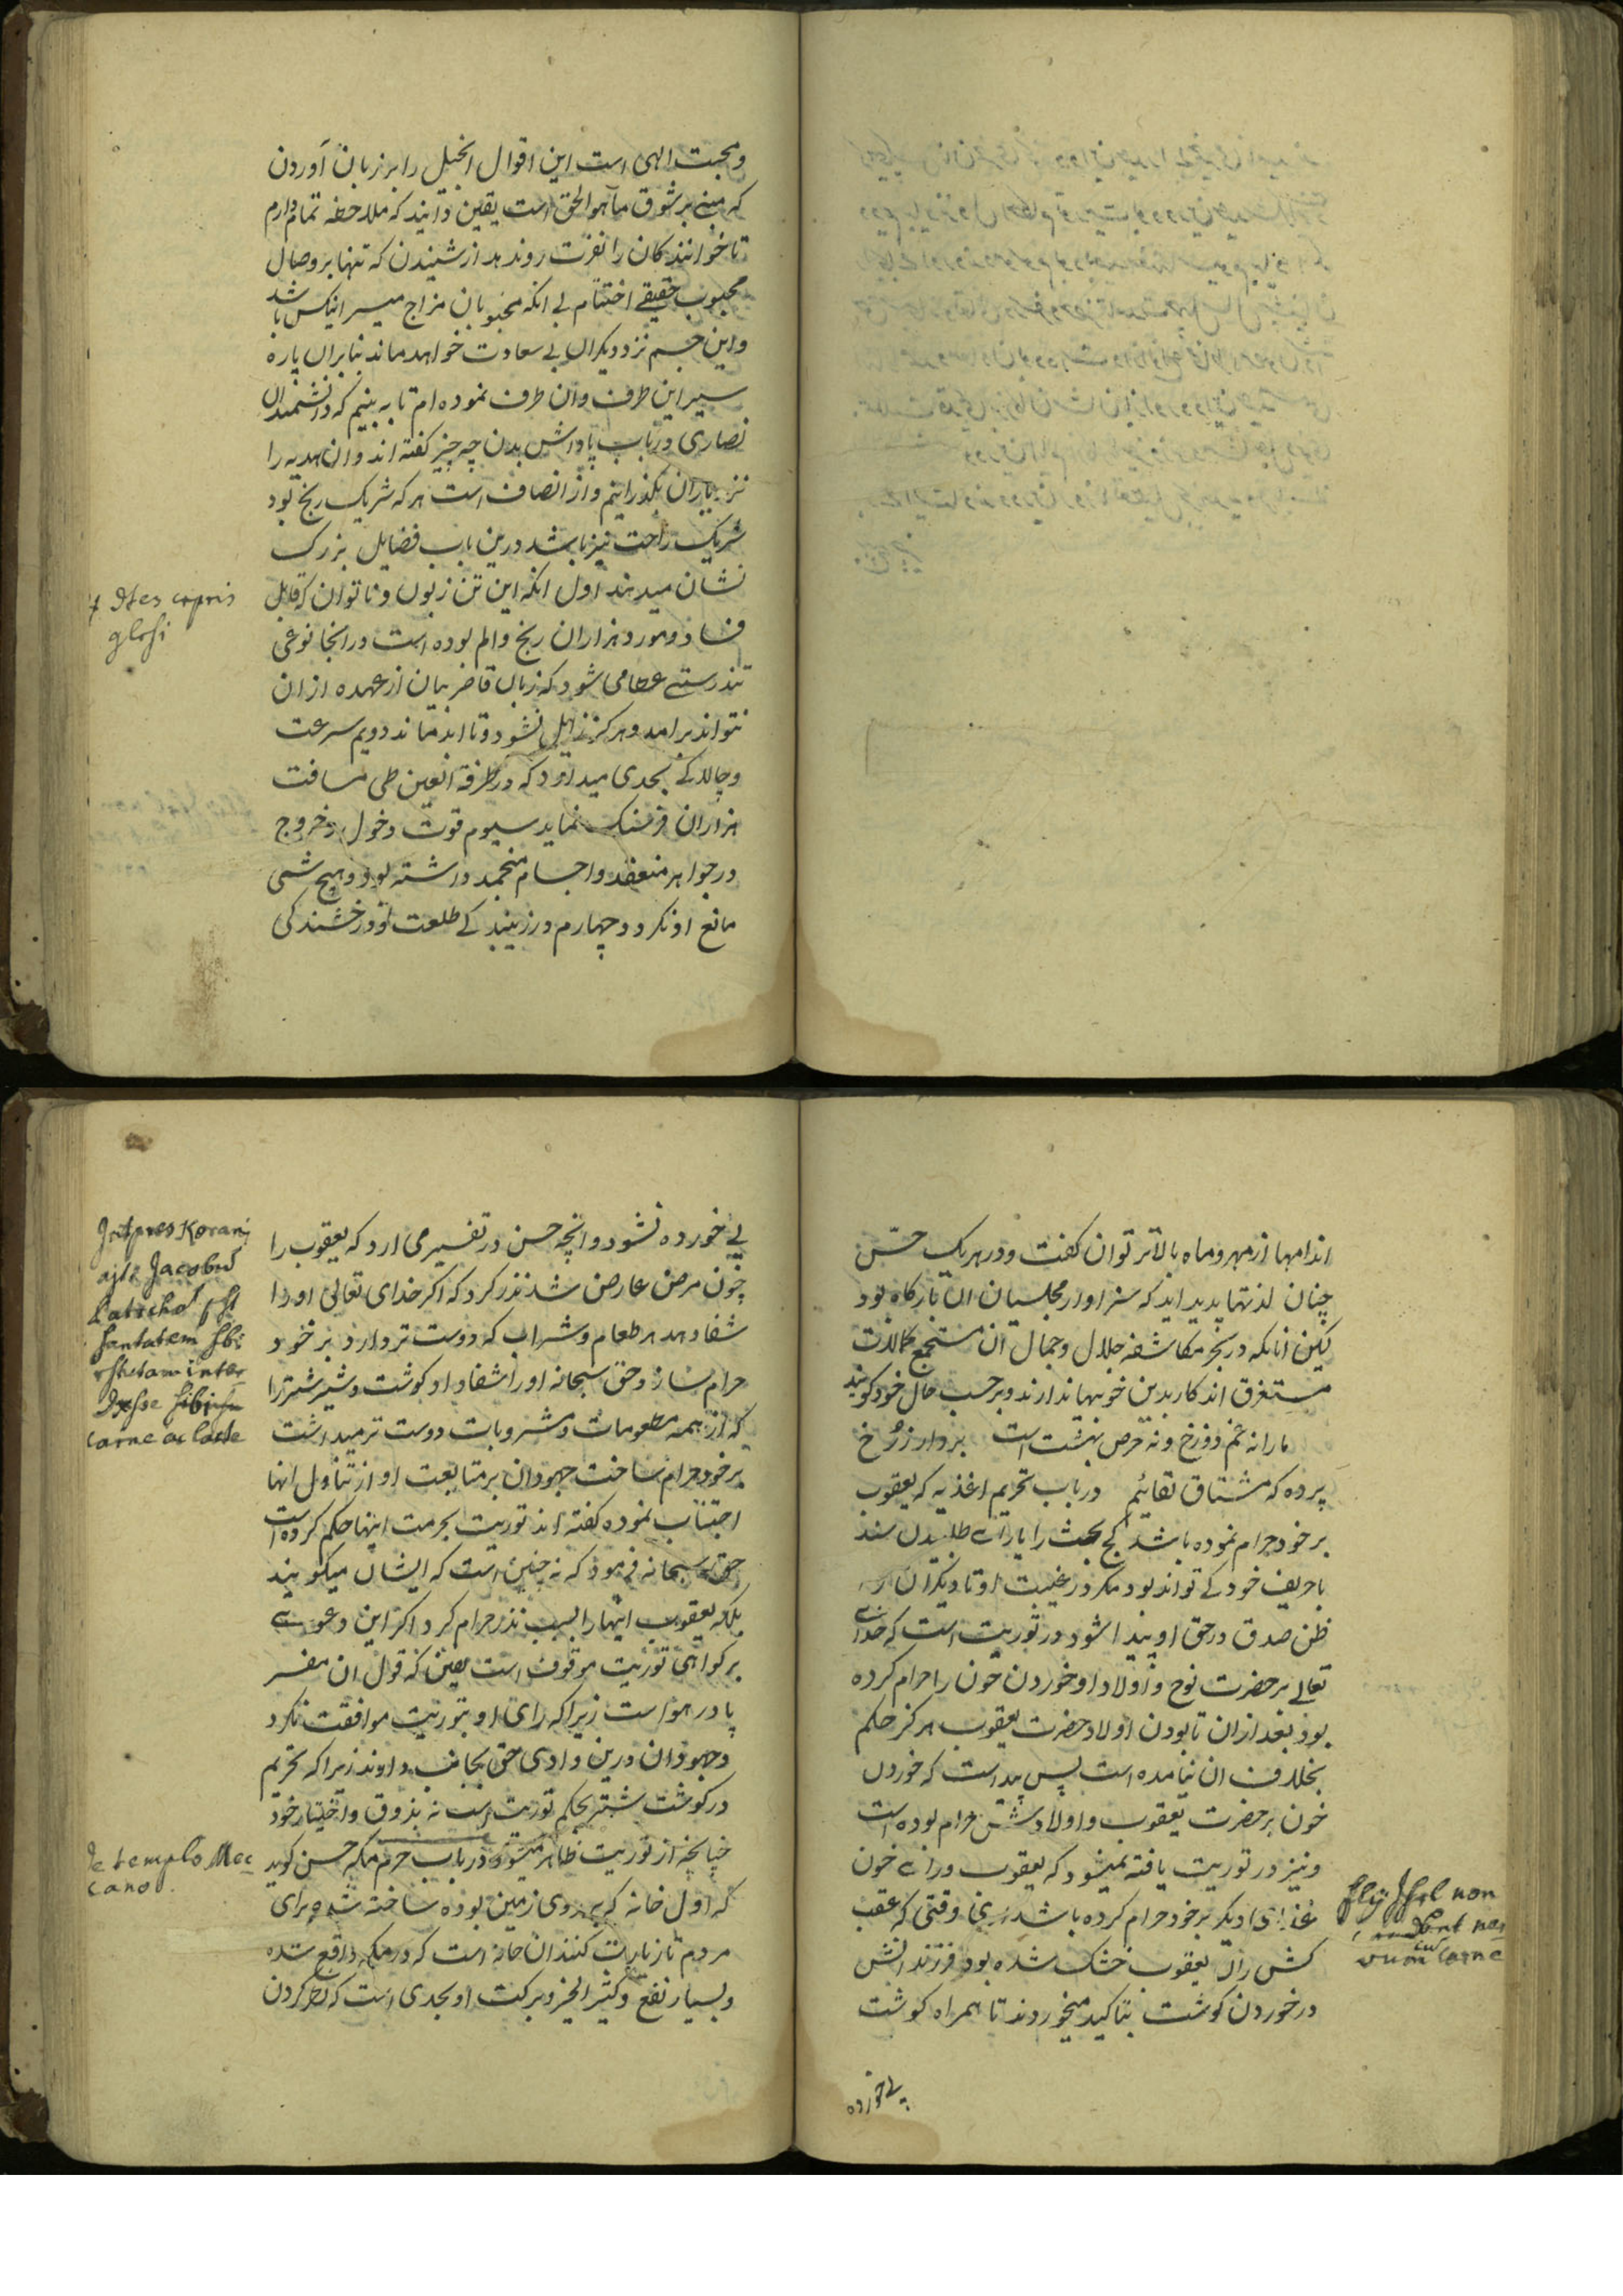 و محبت الهی است این اقوال انجیل را بر زبان آوردن
که مبنی بر شوق ما هو الحق است یقین دانید که ملاحظه تمام دارم
تا خوانندکان را نفرت روندهد از شنیدن که تنها بر وصال
محبوب حقیقے اختتام بی انکه محبوبان مزاج میسر انیکس باشد
و این جسم نزد دیکران بی سعادت خواهد ماند بنابران پاره
سیر این طرف و ان طرف نموده ام تا به بینم که دانشمندان
نصاری در باب پاداش بدن چه چیز کفته اند و ان هدیه را
نزد یاران بکذرانیم و از انصاف است هر که شریک رنج بود
شریک راحت نیز باشد درین باب فضایل بزرک
نشان میدهند اول انکه این تن زبون و ناتوان که قابل
فساد و مورد هزاران رنج و الم بوده است در انجا نوعی
تندرستے عطا می شود که زبان قاصر بیان از عهده ازان
نتواند برامد و هرکز زایل نشود و تا ابد بماند دویم سرعت
و چالاکے بحدی میدارد که در طرفة العین طی مسافت
هزاران فرسنک نماید سیوم قوت دخول و خروج
در جواهر منعقد و اجسام منجمد داشته بود و هیچ شی
مانع او نکردد چهارم در زیبندکے طلعت و درخشندکی
Dtes corpris
glosi
اندامها از مهر و ماه بالاتر توان کفت و در هر یک حسّ
چنان لذتها پدید اید که سزاوار مجلسیان ان بارکاه بود
لیکن انانکه در بحر مکاشفه جلال و جمال ان مستجمع کمالات
مستغرق اند کار بدین خوبیها ندارند و بر حسب حال خود کویند
ما را نه غم دوزخ و نه حرص بهشت است بردار ز رُخ
پرده که مشتاق لقائیم در باب تحریم اغذیه که یعقوب
بر خود حرام نموده باشد کج بحث را یارای طلبیدن سند
با حریف خود کے تواند بود مکر در غیبت او تا دیکران را
ظن صدق در حق او پیدا شود در توریت است که خدای
تعالے بر حضرت نوح و اولاد او خوردن خون را حرام کرده
بود بعد ازان تا بودن اولاد حضرت یعقوب هرکز حکم
بخلاف ان نیامده است پس پیداست که خوردن
خون بر حضرت یعقوب و اولادش حرام بوده است
و نیز در توریت یافته نمیشود که یعقوب ورای خون
غذای دیکر بر خود حرام کرده باشد زیرا وقتی که عقب
کش ران یعقوب خشک شده بود فرزندانش
در خوردن کوشت بتاکید میخوردند تا همراه کوشت
پے خورده
filij Jsrl non
nervum cum carne
پے خورده نشود و انچه حسن در تفسیر می ارد که یعقوب را
چون مرض عارض شد نذر کرد که اکر خدای تعالی او را
شفا دهد هر طعام و شراب که دوست تر دارد بر خود
حرام سازد حق سبحانه او را شفا داد کوشت و شیر شتر را
که از همه مطعومات و مشروبات دوست تر میداشت
بر خود حرام ساخت جهودان بر متابعت او از تناول انها
اجتناب نموده کفته اند توریت بحرمت اینها حکم کرده است
حق سبحانه فرمود که نه چنین است که ایشان میکویند
بلکه یعقوب اینها را بسبب نذر حرام کرد اکر این دعوے
بر کواهی توریت موقوف است یقین که قول ان مفسر
پا در هوا است زیرا که رای او بتوریت موافقت نکرد
و جهودان درین وادی حق بجانب دارند زیرا که تحریم
در کوشت شتر بحکم توریت است نه بذوق و اختیار خود
چنانچه از توریت ظاهر میشود در باب حرم مکه حسن کوید
که اول خانه که بر روی زمین بوده ساخته شده برای
مردم تا زیارت کنند ان خانه است که در مکه واقع شده
و بسیار نفع و کثیر الخیر و برکت او بحدی است که نظر کردن
Jntpres Korani
ajt Jacobus
sanitatem sibi
carne ac lacte
de templo Mec
cano.